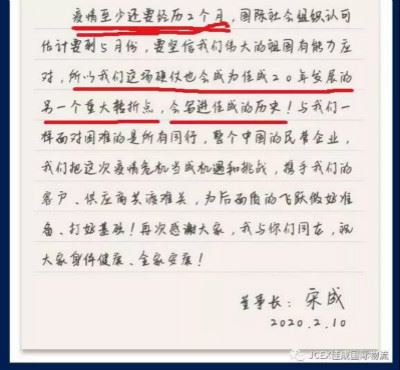 疫情至少还要经历2个月，国际社会组织认可
估计要到5月份，要坚信我们伟大的祖国有能力应
对，所以我们这场建仪也会成为佳成20年发展的
另一个重大转折点，会写进佳成的历史！与我们一
样面对困难的是所有同行，整个中国的民营企业，
我们把这次疫情危机当成机遇和挑战，携手我们的
客户、供应商共渡难关，为后面质的飞跃做好准
备、打好基础！再次感谢大家，我与你们同在，祝
大家身体健康、全家安康！
董事长：宋成
2020.2.10
JCEX佳成国际物流